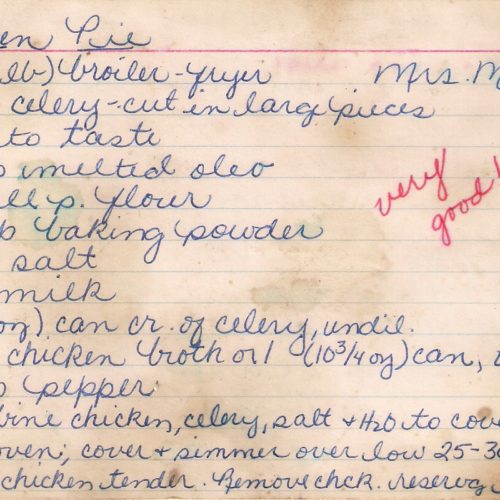 en Pie
lb) broiler-fryer Mrs. M
celery-cut in large pieces
to taste
melted oleo
p. flour very
good!
baking powder
salt
milk
oz) can cr. of celery, undil.
chicken broth or 1 (10¾ oz) can,
pepper
bine chicken, celery, salt + H2O to cove
oven; cover + simmer over low 25-30
chicken tender. Remove chck. reserving